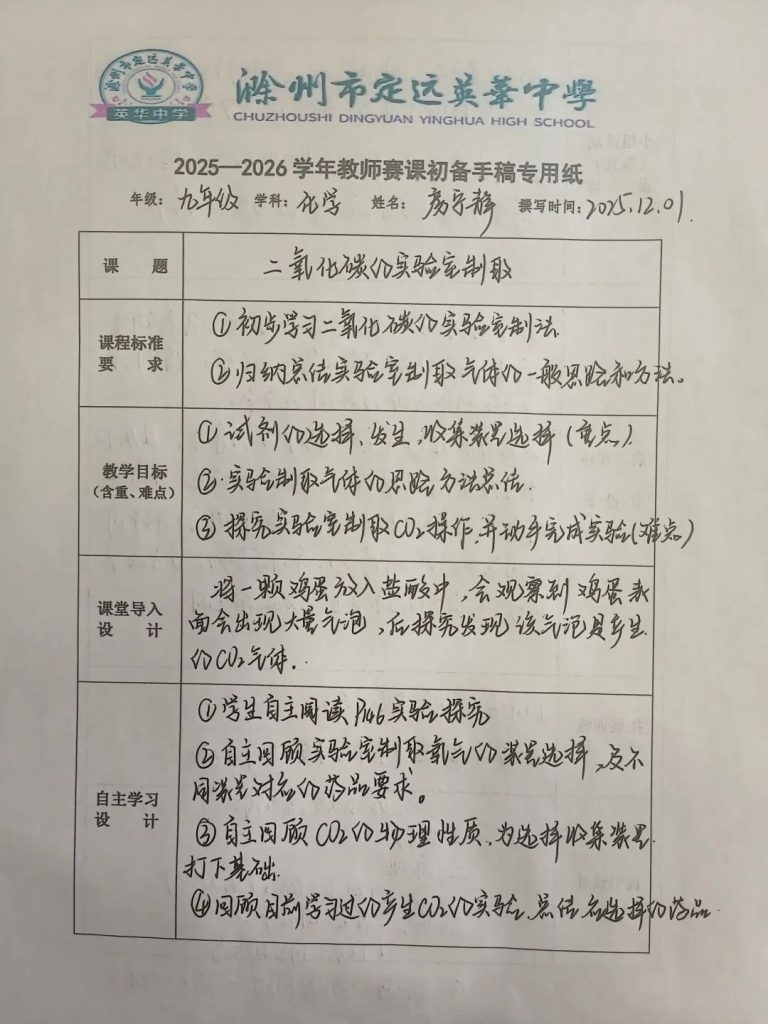 滁州市定远英华中学
英华中学
滁州市定远英華中學
CHUZHOUSHI DINGYUAN YINGHUA HIGH SCHOOL
2025—2026 学年教师赛课初备手稿专用纸
年级：九年级 学科：化学 姓名：房宇静 撰写时间：2025.12.01.
课 题 二氧化碳的实验室制取
课程标准要 求
①初步学习二氧化碳的实验室制法.
②归纳总结实验室制取气体的一般思路和方法。
教学目标（含重、难点）
①试剂的选择、发生，收集装置选择（重点）.
②实验室制取气体的思路方法总结.
③探究实验室制取CO₂操作，并动手完成实验（难点）
课堂导入设 计
将一颗鸡蛋放入盐酸中，会观察到鸡蛋表
面会出现大量气泡，后探究发现该气泡是产生
的CO₂气体.
自主学习设 计
①学生自主阅读P146实验探究
②自主回顾实验室制取氧气的装置选择，及不
同装置对应的药品要求。
③自主回顾CO₂的物理性质，为选择收集装置
打下基础.
④回顾目前学习过的产生CO₂的实验，总结应选择的药品.